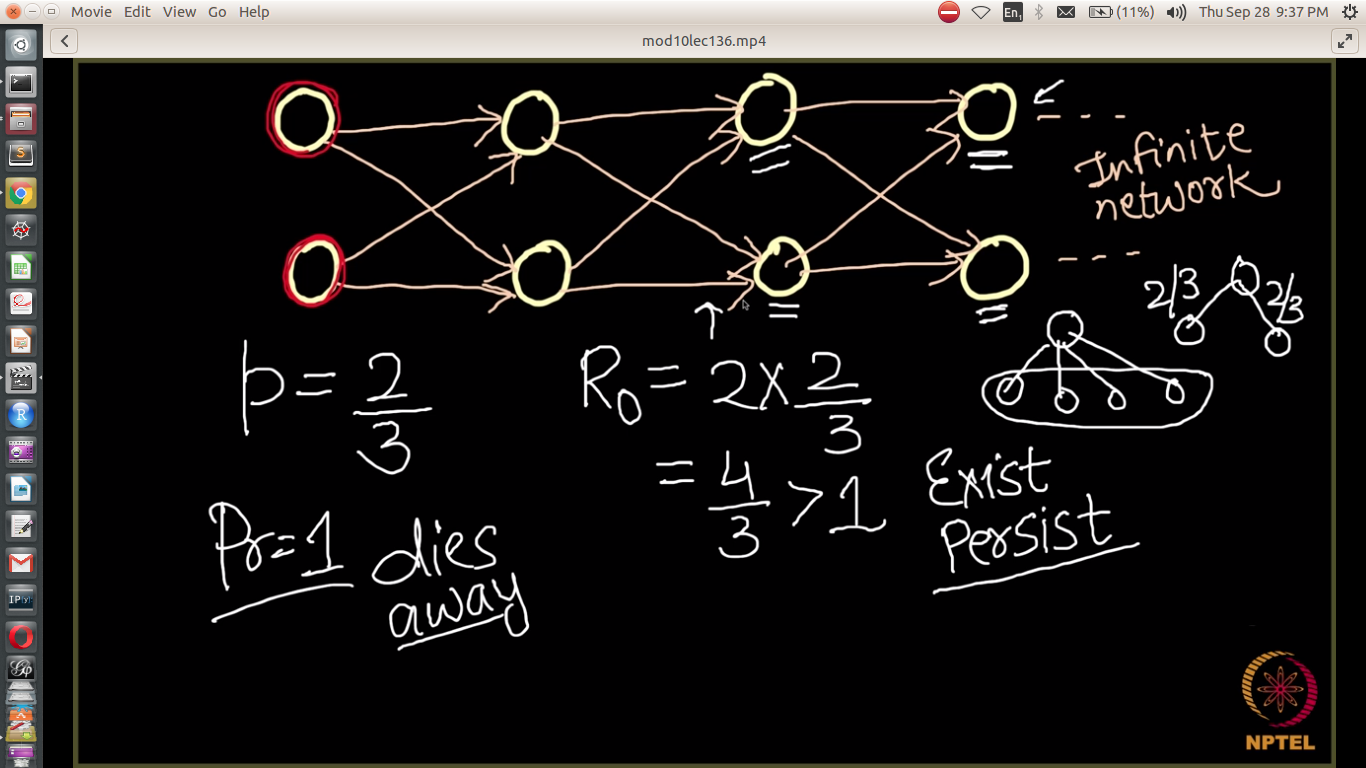 Movie Edit View Go Help
En1 (11%) Thu Sep 28 9:37 PM
mod10lec136.mp4
Infinite
network
2/3 2/3
p = 2/3
R0 = 2 x 2/3
= 4/3 > 1
Exist
Persist
Pr=1 dies
away
NPTEL